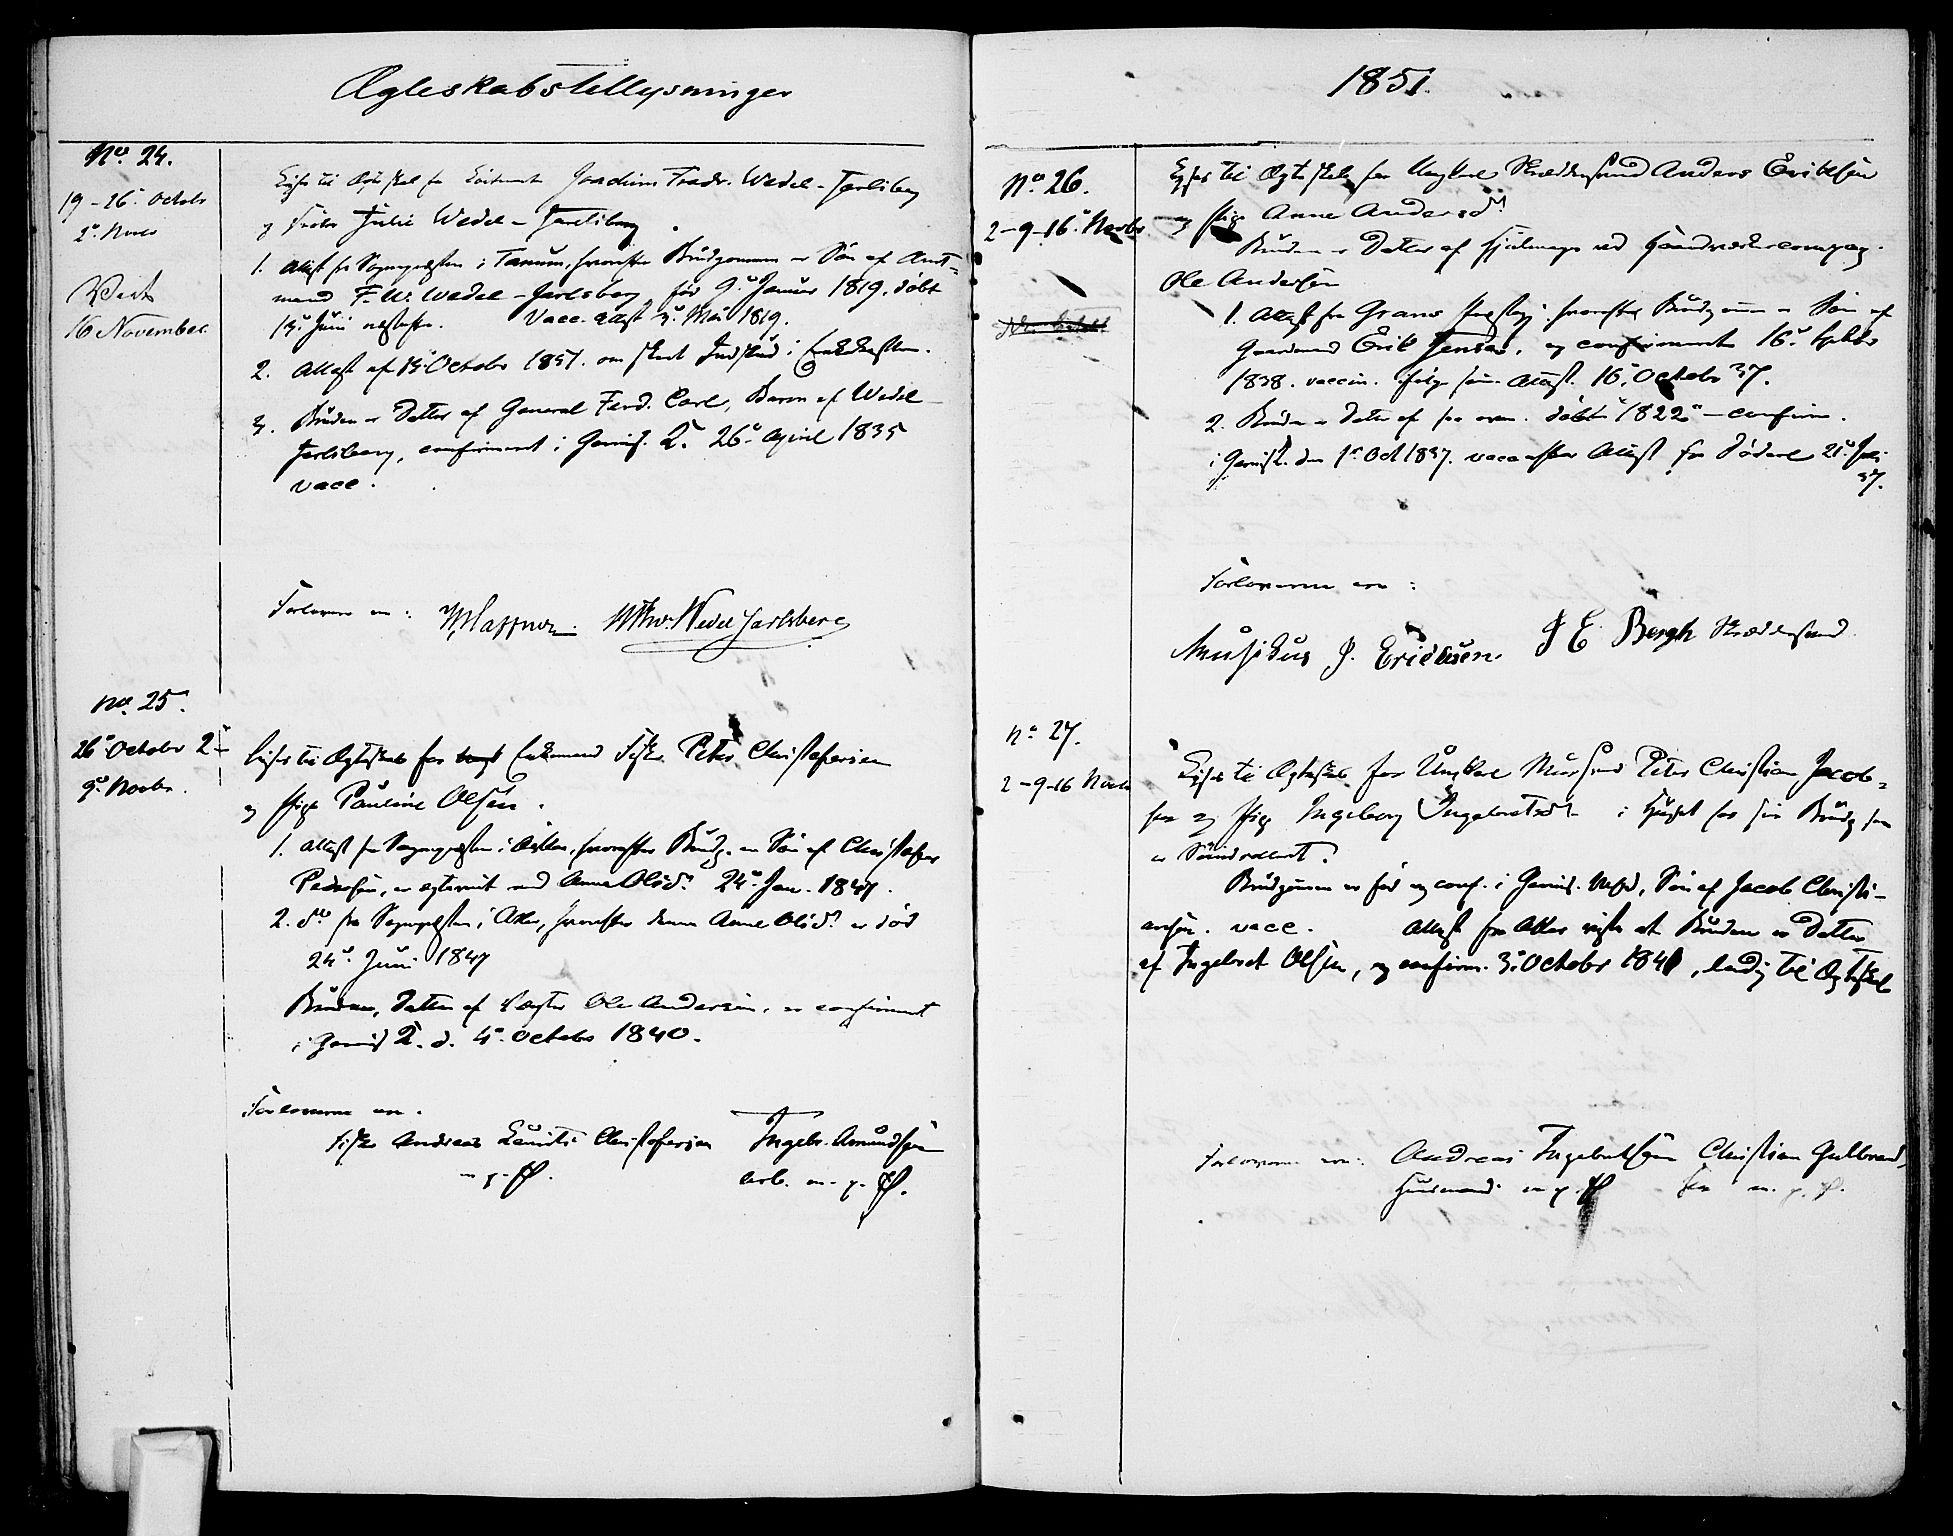 Ægteskabstillysninger
No. 24.
19-26. Octobr
2. Novbr
Viet
16 November
Lyses til Ægteskab for Joachim Fredr. Wedel-Jarlsberg
og Julie Wedel-Jarlsberg
1. Attest fra Sognepræsten i Tanum, hvorefter Brudgommen er Søn af Amt-
mand F. W. Wedel-Jarlsberg, født 9. Januar 1819, døbt
Juni næstefter. Vacc. Attest 3. Mai 1819.
2. Attest af 15 October 1851. om skeet Indskud i Enkekassen.
3. Bruden er Datter af General Ferd. Carl, Baron af Wedel-
Jarlsberg, confirmeret i Garnis. 26. April 1835
vacc.
Forloverne ere: Wedel Jarlsberg
No. 25.
26. Octobr 2-
9. Novbr.
Lyses til Ægteskab for Enkemand Fisker Peter Christofersen
og Pige Pauline Olsen.
1. Attest fra Sognepræsten i Asker, hvorefter Brudg. er Søn af Christofer
Pedersen, er ægteviet med Anna Olsd. 24. Jan. 1847.
2. do fra Sognepræsten i Aker, hvorefter denne Anne Olsd. er død
24. Juni 1847
Bruden, Datter af Ole Andersen, er confirmeret
i Garnis d. 4. Octobr 1840.
Forloverne ere.
Fisker Andreas Lauritz Christofersen Ingebr. Amundsen
m. p. P. arb. m. p. P.
1851.
No. 26.
2-9-16. Novbr
Lyses til Ægteskab for Ungkarl Skræddersvend Anders Eriksen
og Pige Anne Andersd.
Bruden er Datter af ved Haandværkercompag.
Ole Andersen
1. Attest fra Grans Præstegj. hvorefter Brudgommen er Søn af
Gaardmand Erik Jensen, og confirmeret 16. Septbr
1838. vaccin. ifølge Attest. 16. Octobr 37.
2. Bruden er Datter af døbt 1822 - confirm.
i Garnis. den 1. Oct 1837. vacc. efter Attest fra 21. Juli
37.
Forloverne ere:
Musikus J. Ericksen. J E. Bergh Skræddersvend.
No. 27.
2-9-16 Novbr
Lyses til Ægteskab for Ungkarl Mursvend Peter Christian Jacob-
sen og Pige Ingeborg Ingebretsd. i Huset hos sin Brudg som
er
Brudgommen er født og conf. i Garnis. Søn af Jacob Christi-
ansen. vacc. Attest fra Aker viser at Bruden er Datter
af Ingebret Olsen, og confirm. 3. Octobr 1841, ledig til Ægteskab
Forloverne ere: Andreas Ingebretsen Christian Gulbrand-
Huusmand m. p. P sen m. p. P.